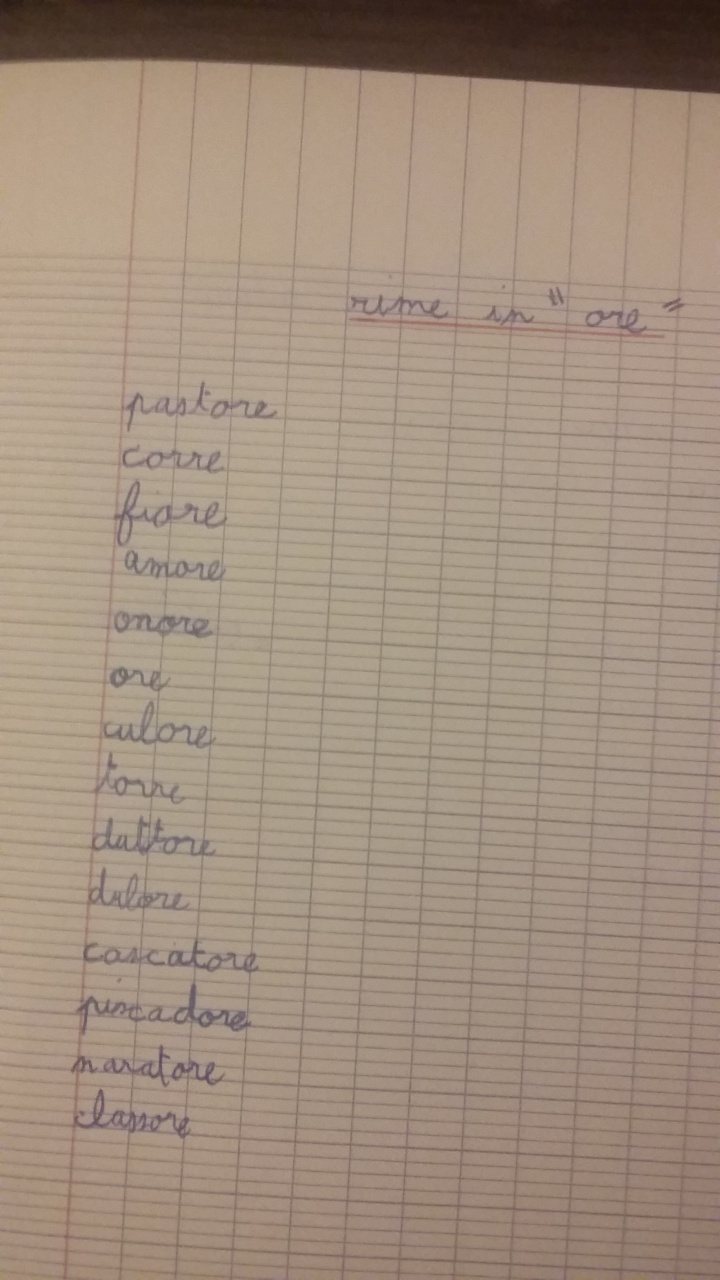 rime in "ore"
pastore
corre
fiore
amore
onore
ore
culore
torre
duttore
dulore
cascatore
piscadore
naratore
classore